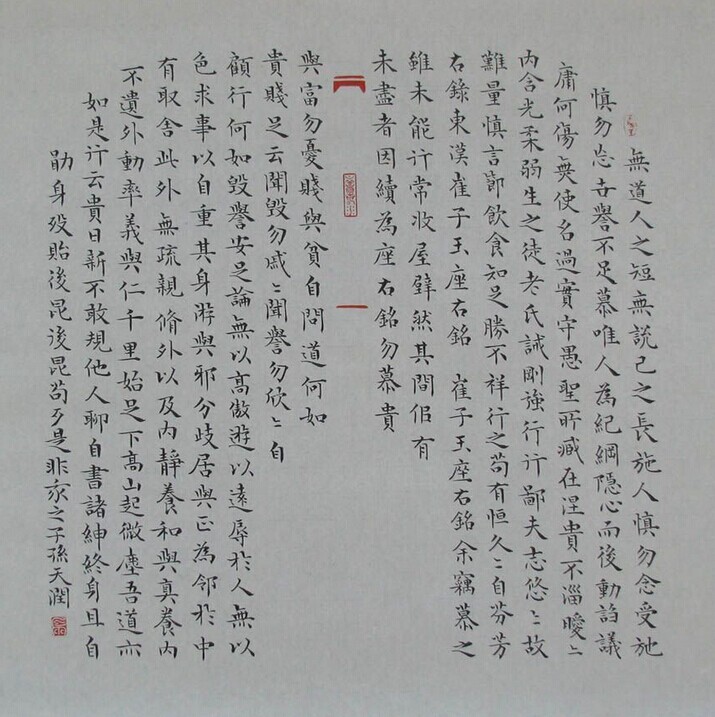 無道人之短無説己之長施人慎勿念受施
慎勿忘世譽不足慕唯人為紀綱隱心而後動謗議
庸何傷無使名過實守愚聖所臧在涅貴不淄曖〻
内含光柔弱生之徒老氏誡剛強行行鄙夫志悠〻故
難量慎言節飲食知足勝不祥行之苟有恒久〻自芬芳
右錄東漢崔子玉座右銘　崔子玉座右銘余竊慕之
雖未能行常收屋壁然其間佀有
未盡者因續為座右銘勿慕貴
與富勿憂賤與貧自問道何如
貴賤足云聞毀勿戚〻聞譽勿欣〻自
顧行何如毀譽安足論無以高傲遊以遠辱於人無以
色求事以自重其身游與邪分歧居與正為邻於中
有取舍此外無疏親脩外以及内靜養和與真養内
不遺外動率義與仁千里始足下高山起微塵吾道亦
如是行云貴日新不敢規他人聊自書諸紳終身且自
勖身歿貽後昆後昆苟歹是非我之子孫天潤